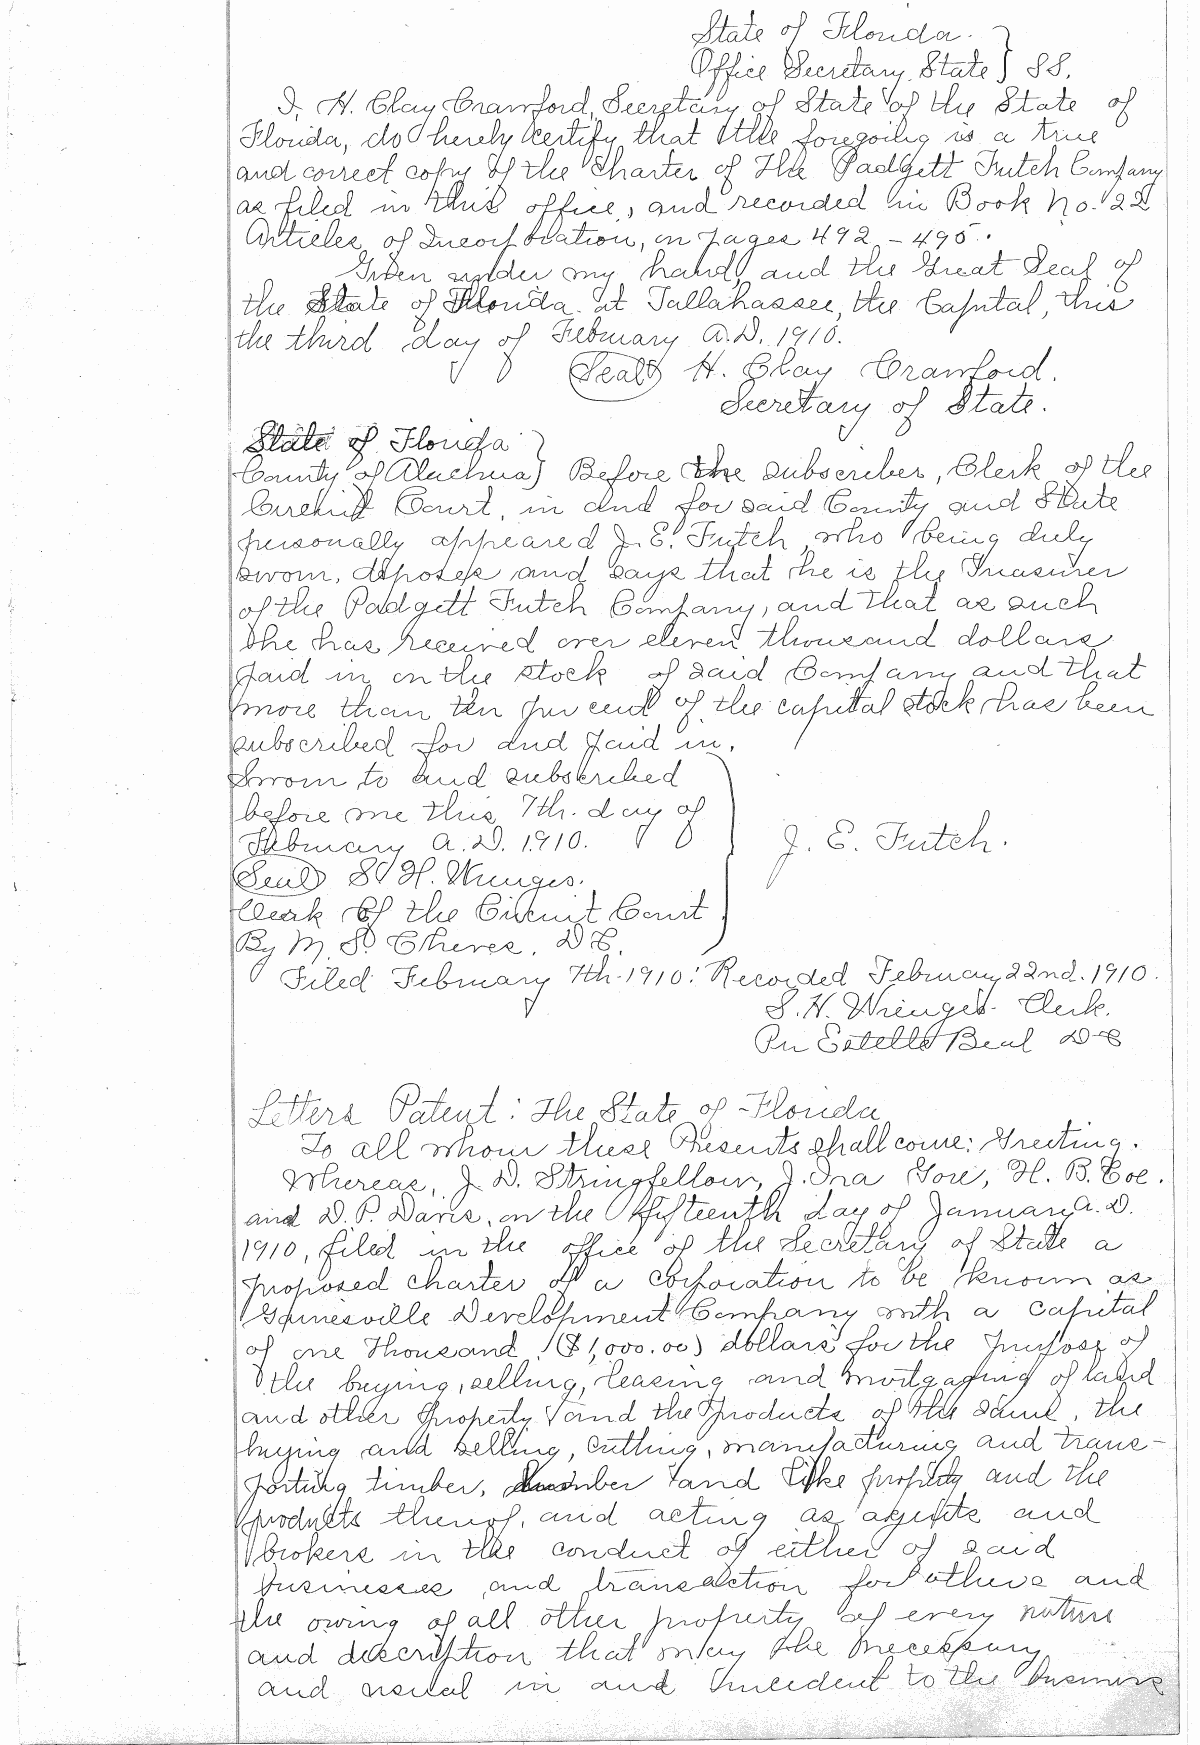 State of Florida. }
Office Secretary State } SS.
I, H. Clay Crawford, Secretary of State of the State of
Florida, do hereby certify that the foregoing is a true
and correct copy of the Charter of The Padgett Futch Company
as filed in this office, and recorded in Book No. 22
Articles of Incorporation, on pages 492 - 495.
Given under my hand, and the Great Seal of
the State of Florida at Tallahassee, the Capital, this
the third day of February A.D. 1910.
(Seal) H. Clay Crawford.
Secretary of State.
State of Florida }
County of Alachua } Before the subscriber, Clerk of the
Circuit Court, in and for said County and State
personally appeared J. E. Futch, who being duly
sworn, deposes and says that he is the Treasurer
of the Padgett Futch Company, and that as such
he has received over eleven thousand dollars
paid in on the stock of said Company and that
more than ten per cent of the capital stock has been
subscribed for and paid in.
Sworn to and subscribed
before me this 7th. day of
February A.D. 1910.
J. E. Futch.
(Seal) S. H. Wienges.
Clerk of the Circuit Court
By M. S. Cheves. D C.
Filed February 7th. 1910: Recorded February 22nd. 1910.
S. H. Wienges. Clerk.
Per Estelle Beal D-C
Letters Patent: The State of Florida
To all whom these Presents shall come: Greeting.
Whereas, J. D. Stringfellow, J. Ira Gore, H. B. Coe.
and D. P. Davis, on the fifteenth day of January A.D.
1910, filed in the office of the Secretary of State a
proposed charter of a corporation to be known as
Gainesville Development Company with a capital
of one thousand ($1,000.00) dollars for the purpose of
the buying, selling, leasing and mortgaging of land
and other property and the products of the same, the
buying and selling, cutting, manufacturing and trans-
porting timber, lumber and like property and the
products thereof, and acting as agents and
brokers in the conduct of either of said
businesses and transaction for others and
the owing of all other property of every nature
and description that may be necessary
and usual in and incident to the business